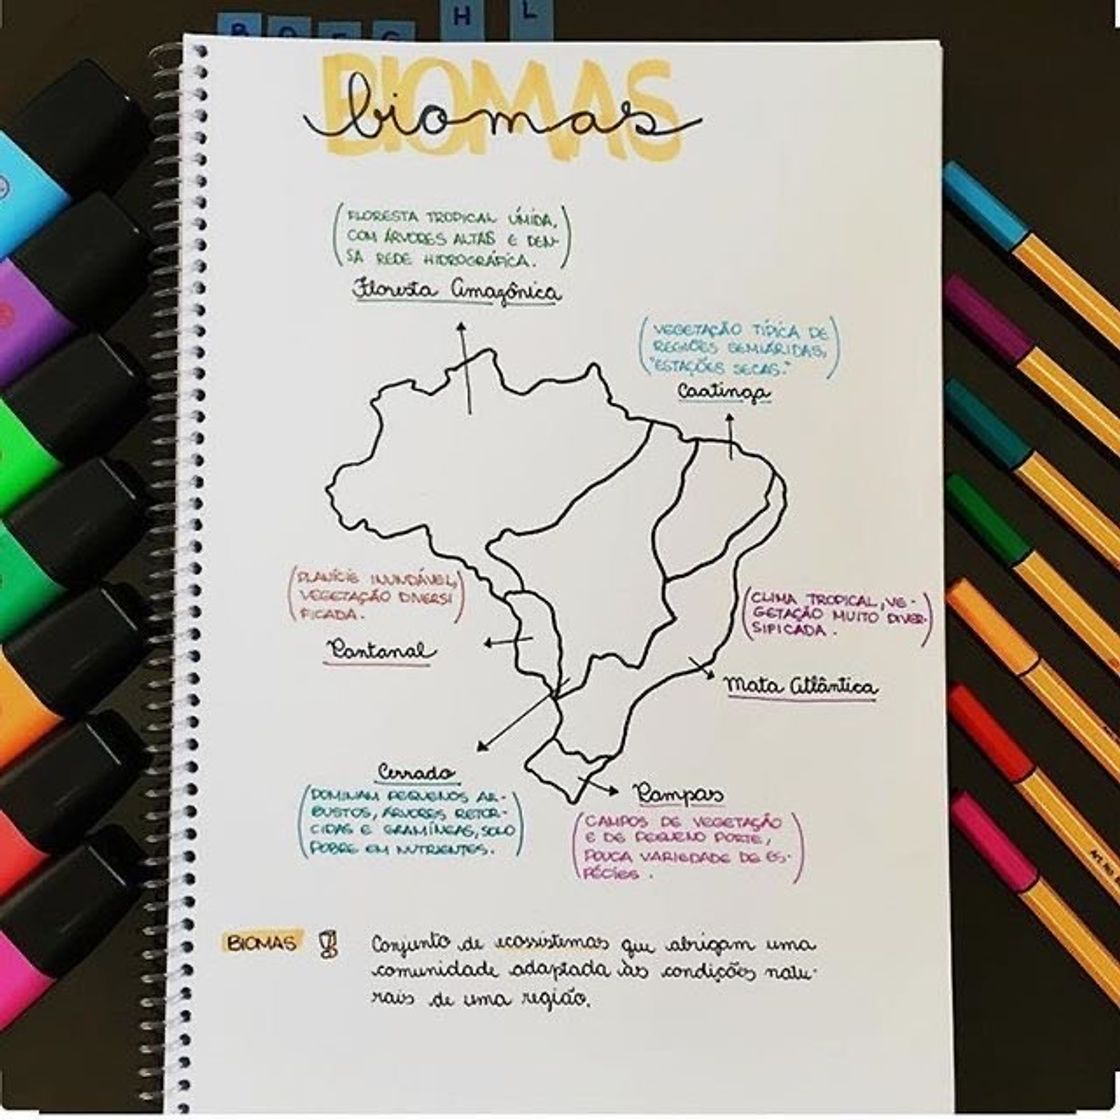 B O E G H L
BIOMAS
biomas
(FLORESTA TROPICAL ÚMIDA,
COM ÁRVORES ALTAS E DEN-
SA REDE HIDROGRÁFICA.)
Floresta Amazônica
(VEGETAÇÃO TÍPICA DE
REGIÕES SEMIÁRIDAS,
"ESTAÇÕES SECAS.")
Caatinga
(PLANÍCIE INUNDÁVEL,
VEGETAÇÃO DIVERSI
FICADA.)
Pantanal
(CLIMA TROPICAL, VE-
GETAÇÃO MUITO DIVER-
SIFICADA.)
Mata Atlântica
Cerrado
(DOMINAM PEQUENOS AR-
BUSTOS, ÁRVORES RETOR-
CIDAS E GRAMÍNEAS, SOLO
POBRE EM NUTRIENTES.)
Pampas
(CAMPOS DE VEGETAÇÃO
E DE PEQUENO PORTE,
POUCA VARIEDADE DE ES-
PÉCIES.)
BIOMAS ! Conjunto de ecossistemas que abrigam uma
comunidade adaptada às condições natu-
rais de uma região.